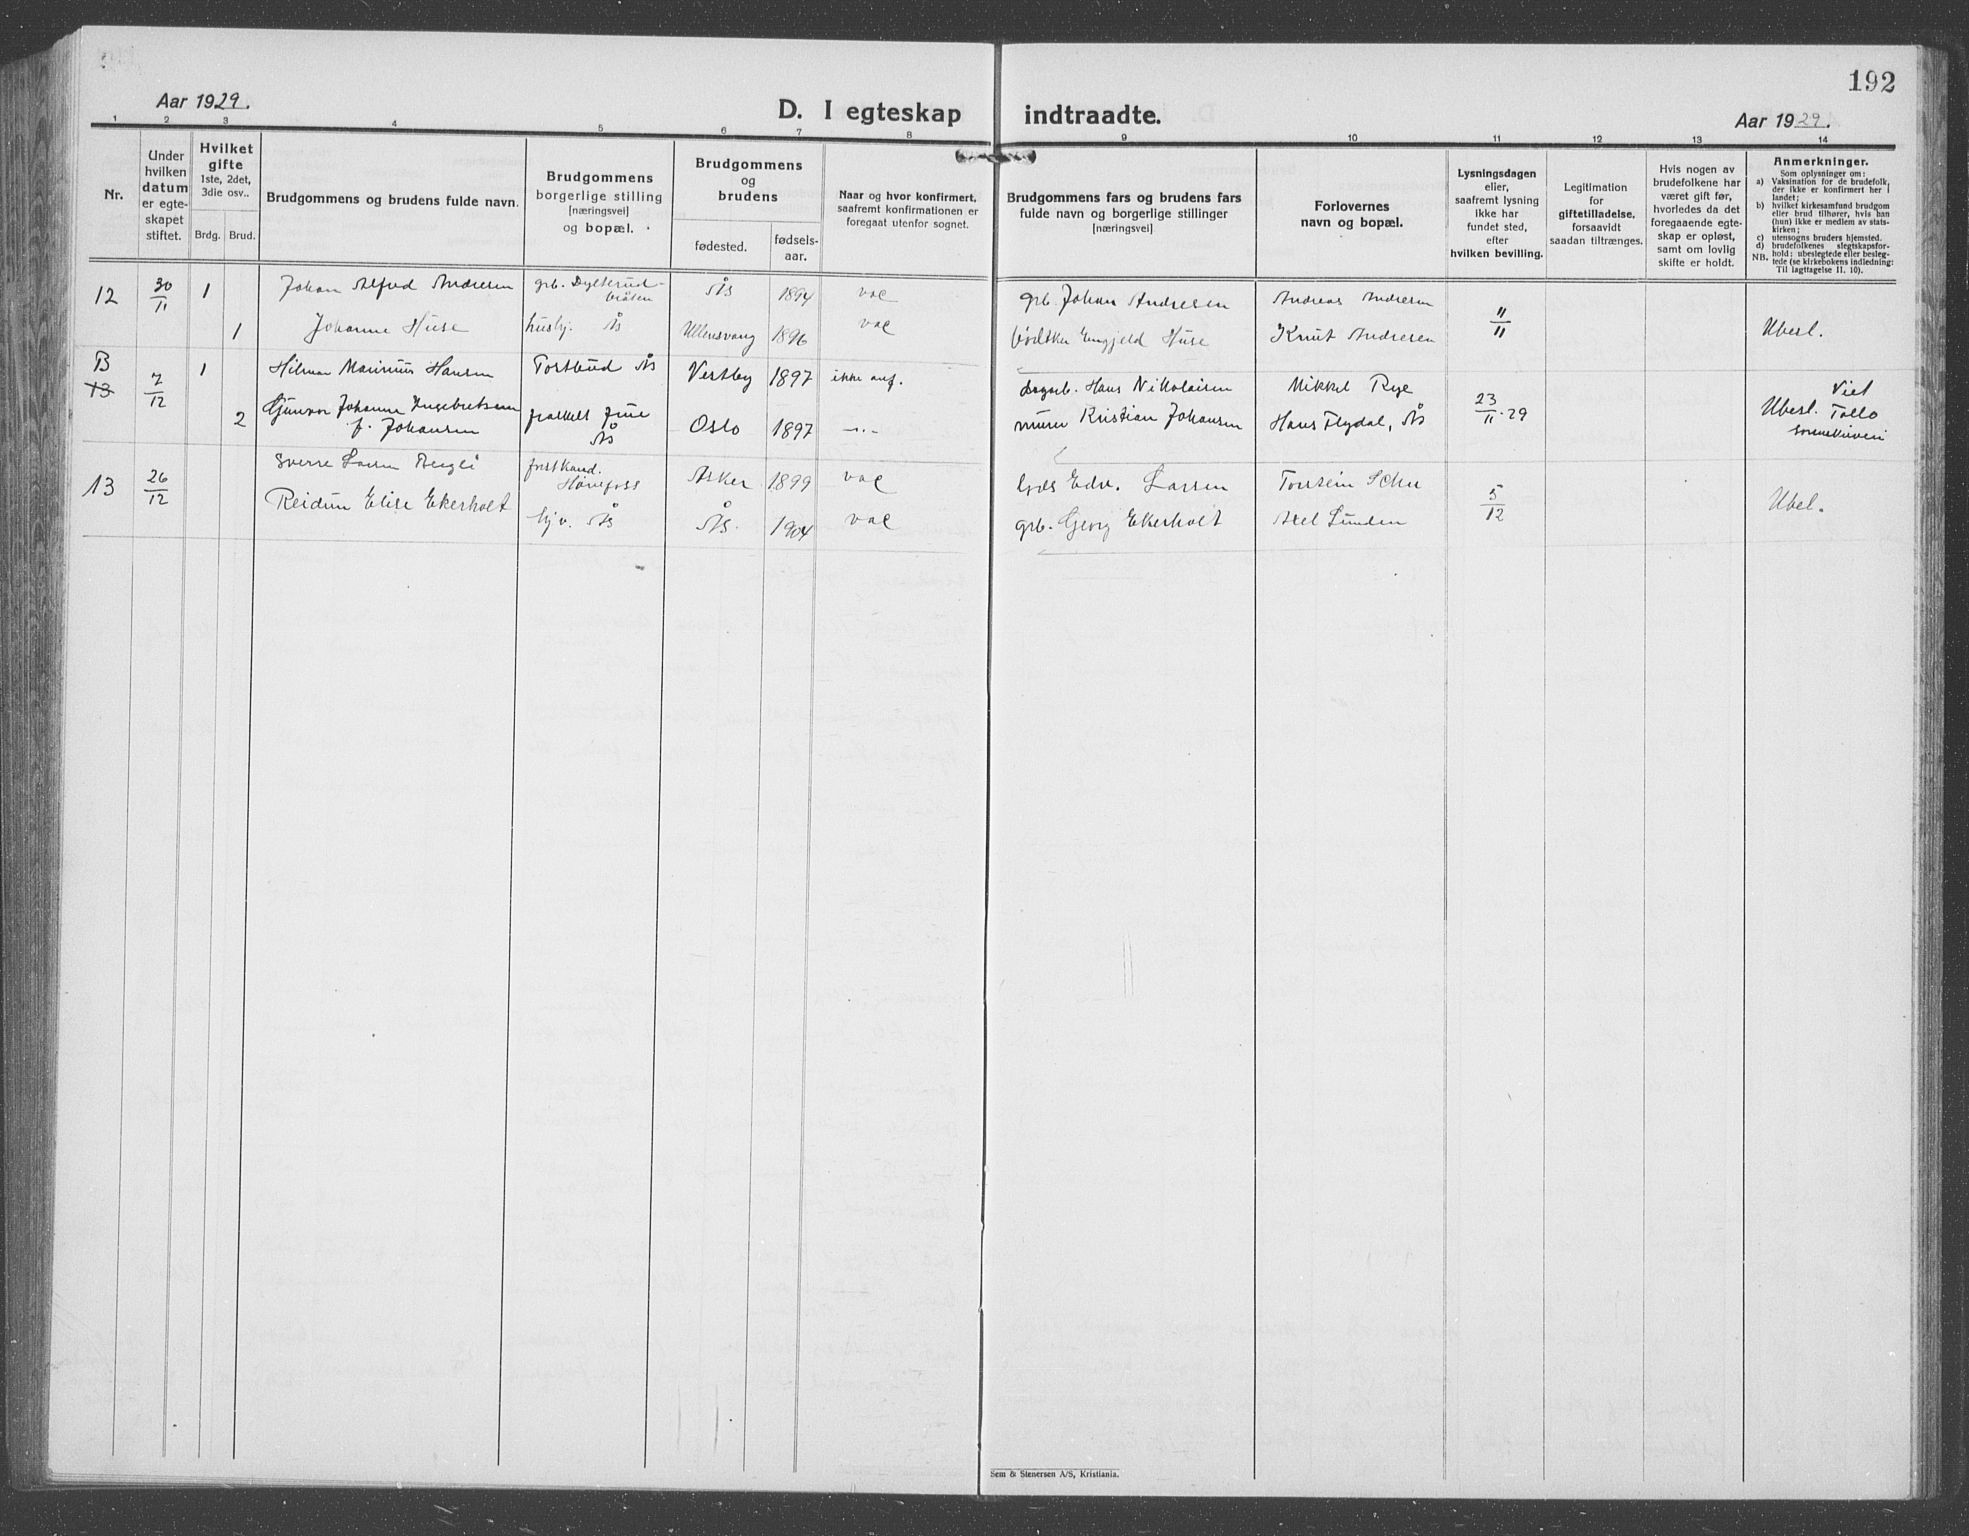 192
Aar 1929.
D. I egteskap indtraadte.
Aar 1929.
1 2 3 4 5 6 7 8 9 10 11 12 13 14
Nr.
Under
hvilken
datum
er egte-
skapet
stiftet.
Hvilket
gifte
1ste, 2det,
3die osv..
Brdg. Brud.
Brudgommens og brudens fulde navn.
Brudgommens
borgerlige stilling
[næringsvei]
og bopæl.
Brudgommens
og
brudens
fødested.
fødsels-
aar.
Naar og hvor konfirmert,
saafremt konfirmationen er
foregaat utenfor sognet.
Brudgommens fars og brudens fars
fulde navn og borgerlige stillinger
[næringsvei]
Forlovernes
navn og bopæl.
Lysningsdagen
eller,
saafremt lysning
ikke har
fundet sted,
efter
hvilken bevilling.
Legitimation
for
giftetilladelse,
forsaavidt
saadan tiltrænges.
Hvis nogen av
brudefolkene har
været gift før,
hvorledes da det
foregaaende egte-
skap er opløst,
samt om lovlig
skifte er holdt.
Anmerkninger.
Som oplysninger om:
a) Vaksination for de brudefolk,
der ikke er konfirmert her i
landet;
b) hvilket kirkesamfund brudgom
eller brud tilhører, hvis han
(hun) ikke er medlem av stats-
kirken;
c) utensogns bruders hjemsted.
d) brudefolkenes slegtskapsfor-
hold: ubeslegtede eller besleg-
NB. tede (se kirkebokens indledning:
Til Iagttagelse II. 10).
12 30/11 1 Johan Alfred Andresen grb. Dysterud- Ås 1894 vac grb. Johan Andresen Andreas Andresen 11/11
bråten
1 Johanne Huse husbj. Ås Ullensvang 1896 vac Engjeld Huse Knut Andresen Ubesl.
B
13 7/12 1 Hilmar Marinius Hansen Tostrud Ås Vestby 1897 ikke anf. dagarb. Hans Nikolaisen Mikkel Rye 23/11-29
2 Gunvor Johanne Ingebretsen frasket frue Oslo 1897 —„— murer Kristian Johansen Hans Flydal, Ås Ubesl. Viet
f. Johansen Ås Tollo
13 26/12 Sverre Larsen Bergli forstkand. Asker 1899 vac Gods Edv. Larsen Torstein 5/12
Hønefoss
Reidun Elise Ekerholt hjv. Ås Ås. 1904 vac grb. Georg Ekerholt Axel Lunden Ubel.
Sem & Stenersen A/S, Kristiania.